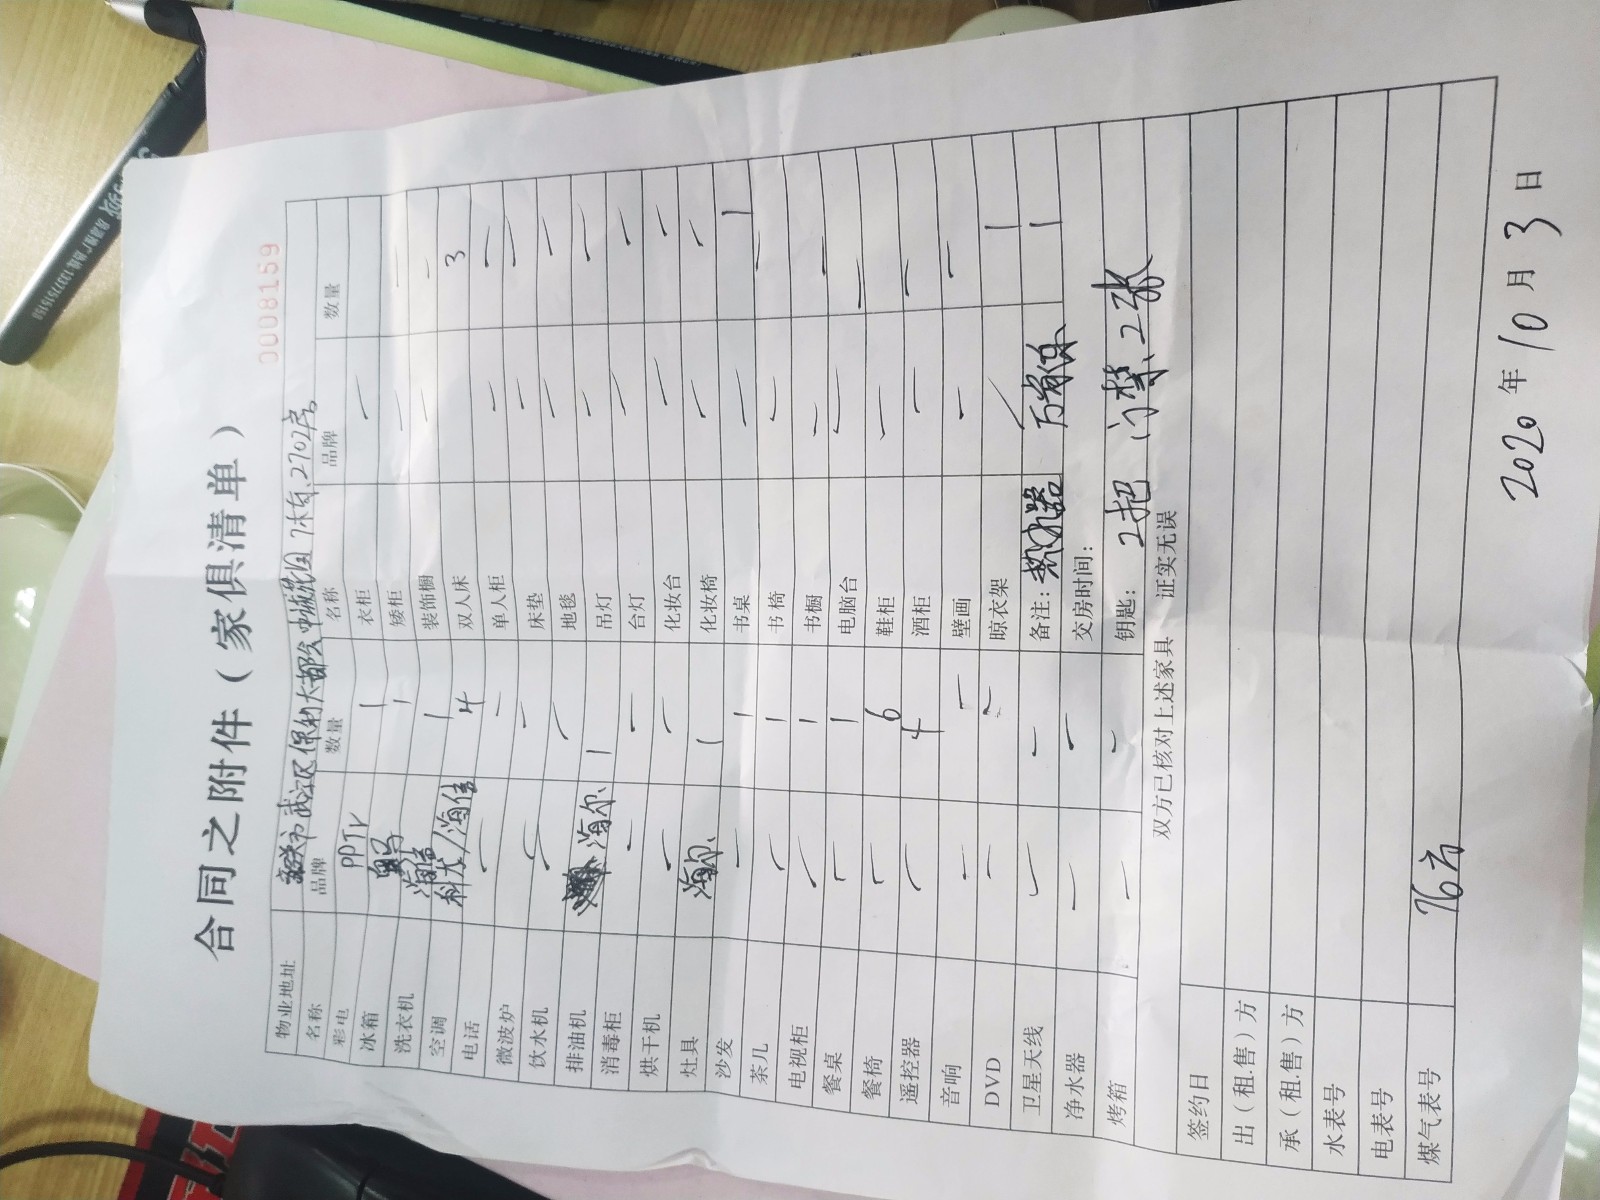 合同之附件（家俱清单）
0008159
物业地址 市武江区保利大都会中械花园7栋、2702房
名称 品牌 数量 名称 品牌 数量
彩电 PPTV 1 衣柜 — —
冰箱 1 矮柜 — —
洗衣机 海信 1 装饰橱 — —
空调 科龙/海信 4 双人床 3
电话 — — 单人柜 — —
微波炉 — — 床垫 — —
饮水机 — — 地毯 — —
排油机 海尔 1 吊灯 — —
消毒柜 — — 台灯 — —
烘干机 — — 化妆台 — —
灶具 海尔 1 化妆椅 — —
沙发 — 1 书桌 — 1
茶几 — 1 书椅 — —
电视柜 — 1 书橱 — —
餐桌 — 1 电脑台 — —
餐椅 — 6 鞋柜 — —
遥控器 — 4 酒柜 — —
音响 — — 壁画 — —
DVD — — 晾衣架 — 1
卫星天线 — — 备注：热水器 万家乐 1
净水器 — — 交房时间：
烤箱 — — 钥匙： 2把 门禁、2张
双方已核对上述家具 证实无误
签约日
出（租.售）方
承（租.售）方
水表号
电表号
煤气表号 76方
2020 年 10 月 3 日